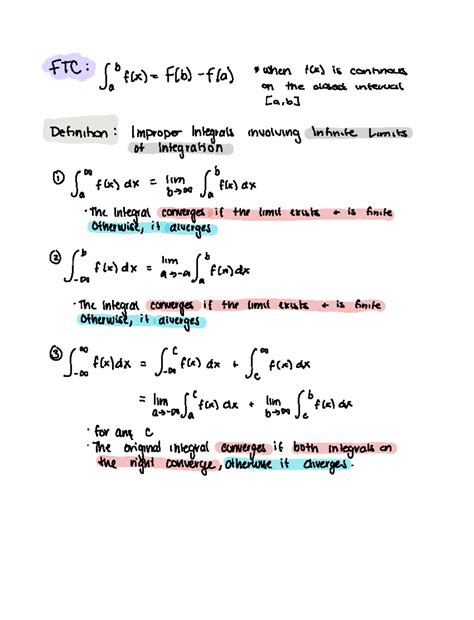 FTC: ∫_a^b f(x) = F(b) - f(a) * when f(x) is continous
on the closed interval
[a,b]
Definition: Improper Integrals involving Infinite Limits
of Integration
① ∫_a^∞ f(x) dx = lim_{b→∞} ∫_a^b f(x) dx
· The Integral converges if the limit exists + is finite
Otherwise, it diverges
② ∫_{-∞}^b f(x) dx = lim_{a→-∞} ∫_a^b f(x) dx
· The Integral converges if the limit exists + is finite
Otherwise, it diverges
③ ∫_{-∞}^∞ f(x) dx = ∫_{-∞}^c f(x) dx + ∫_c^∞ f(x) dx
= lim_{a→-∞} ∫_a^c f(x) dx + lim_{b→∞} ∫_c^b f(x) dx
· for any c
· The original integral converges if both integrals on
the right converge, otherwise it diverges.